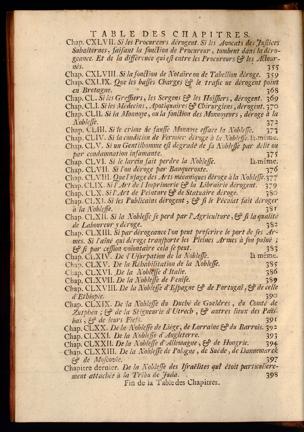 TABLE DES CHAPITRES.
Chap. CXLVII. Si les Procureurs dérogent. Si les Avocats des Justices
Subalternes, faisant la fonction de Procureur, tombent dans la déro-
geance. Et de la différence qui est entre les Procureurs & les
355
Chap. CXLVIII. Si la fonction de Notaire ou de Tabellion déroge. 359
Chap. CXLIX. Que les basses Charges & le trafic ne dérogent point
en Bretagne. 368
Chap. CL. Si les Greffiers, les Sergens & les Huissiers, dérogent. 369
Chap. CLI. Si les Médecins, & Chirurgiens, dérogent. 370
Chap. CLII. Si la Monnoye, ou la fonction des Monoyeurs, déroge à la
Noblesse. 372
Chap. CLIII. Si le crime de fausse Monnoye efface la Noblesse. 373
Chap. CLIV. Si la condition de Fermier déroge à la Noblesse. là-même.
Chap. CLV. Si un Gentilhomme est dégradé de sa Noblesse par délit ou
par condamnation infamante. 375
Chap. CLVI. Si le larcin fait perdre la Noblesse. là-même.
Chap. CLVII. Si l'on déroge par Banqueroute. 376
Chap. CLVIII. Que l'usage des Arts mécaniques déroge à la Noblesse. 377
Chap. CLIX. Si l'Art de l'Imprimerie & la Librairie dérogent. 379
Chap. CLX. Si l'Art de Peinture & de Statuaire déroge. 380
Chap. CLXI. Si les Publicains dérogent; & si le Pécaiat fait déroger
à la Noblesse. 381
Chap. CLXII. Si la Noblesse se perd par l'Agriculture, & si la qualité
de Laboureur y déroge. 382
Chap. CLXIII. Si par dérogeance l'on peut prescrire le port de ses Ar-
mes. Si l'aîné qui déroge transporte les Pleines Armes à son puîné;
& si par cession volontaire cela se peut. 383
Chap. CLXIV. De l'Usurpation de la Noblesse. là même.
Chap. CLXV. De la Réhabilitation de la Noblesse. 385
Chap. CLXVI. De la Noblesse d'Italie. 386
Chap. CLXVII. De la Noblesse de Venise. 389
Chap. CLXVIII. De la Noblesse d'Espagne & de Portugal, & de celle
d'Ethiopie. 390
Chap. CLXIX. De la Noblesse du Duché de Gueldres, du Comté de
Zutphen; & de la Seigneurie d'Utrech, & autres lieux des Païs-
bas; & de leurs Fiefs. 391
Chap. CLXX. De la Noblesse de Liége, de Lorraine & du Barrois. 392
Chap. CLXXI. De la Noblesse d'Angleterre. 393
Chap. CLXXII. De la Noblesse d'Allemagne, & de Hongrie. 394
Chap. CLXXIII. De la Noblesse de Pologne, de Suéde, de Dannemarck
& de Moscovie. 397
Chapitre dernier. De la Noblesse des Israëlites qui étoit particuliere-
ment attachée à la Tribu de Juda. 398
Fin de la Table des Chapitres.